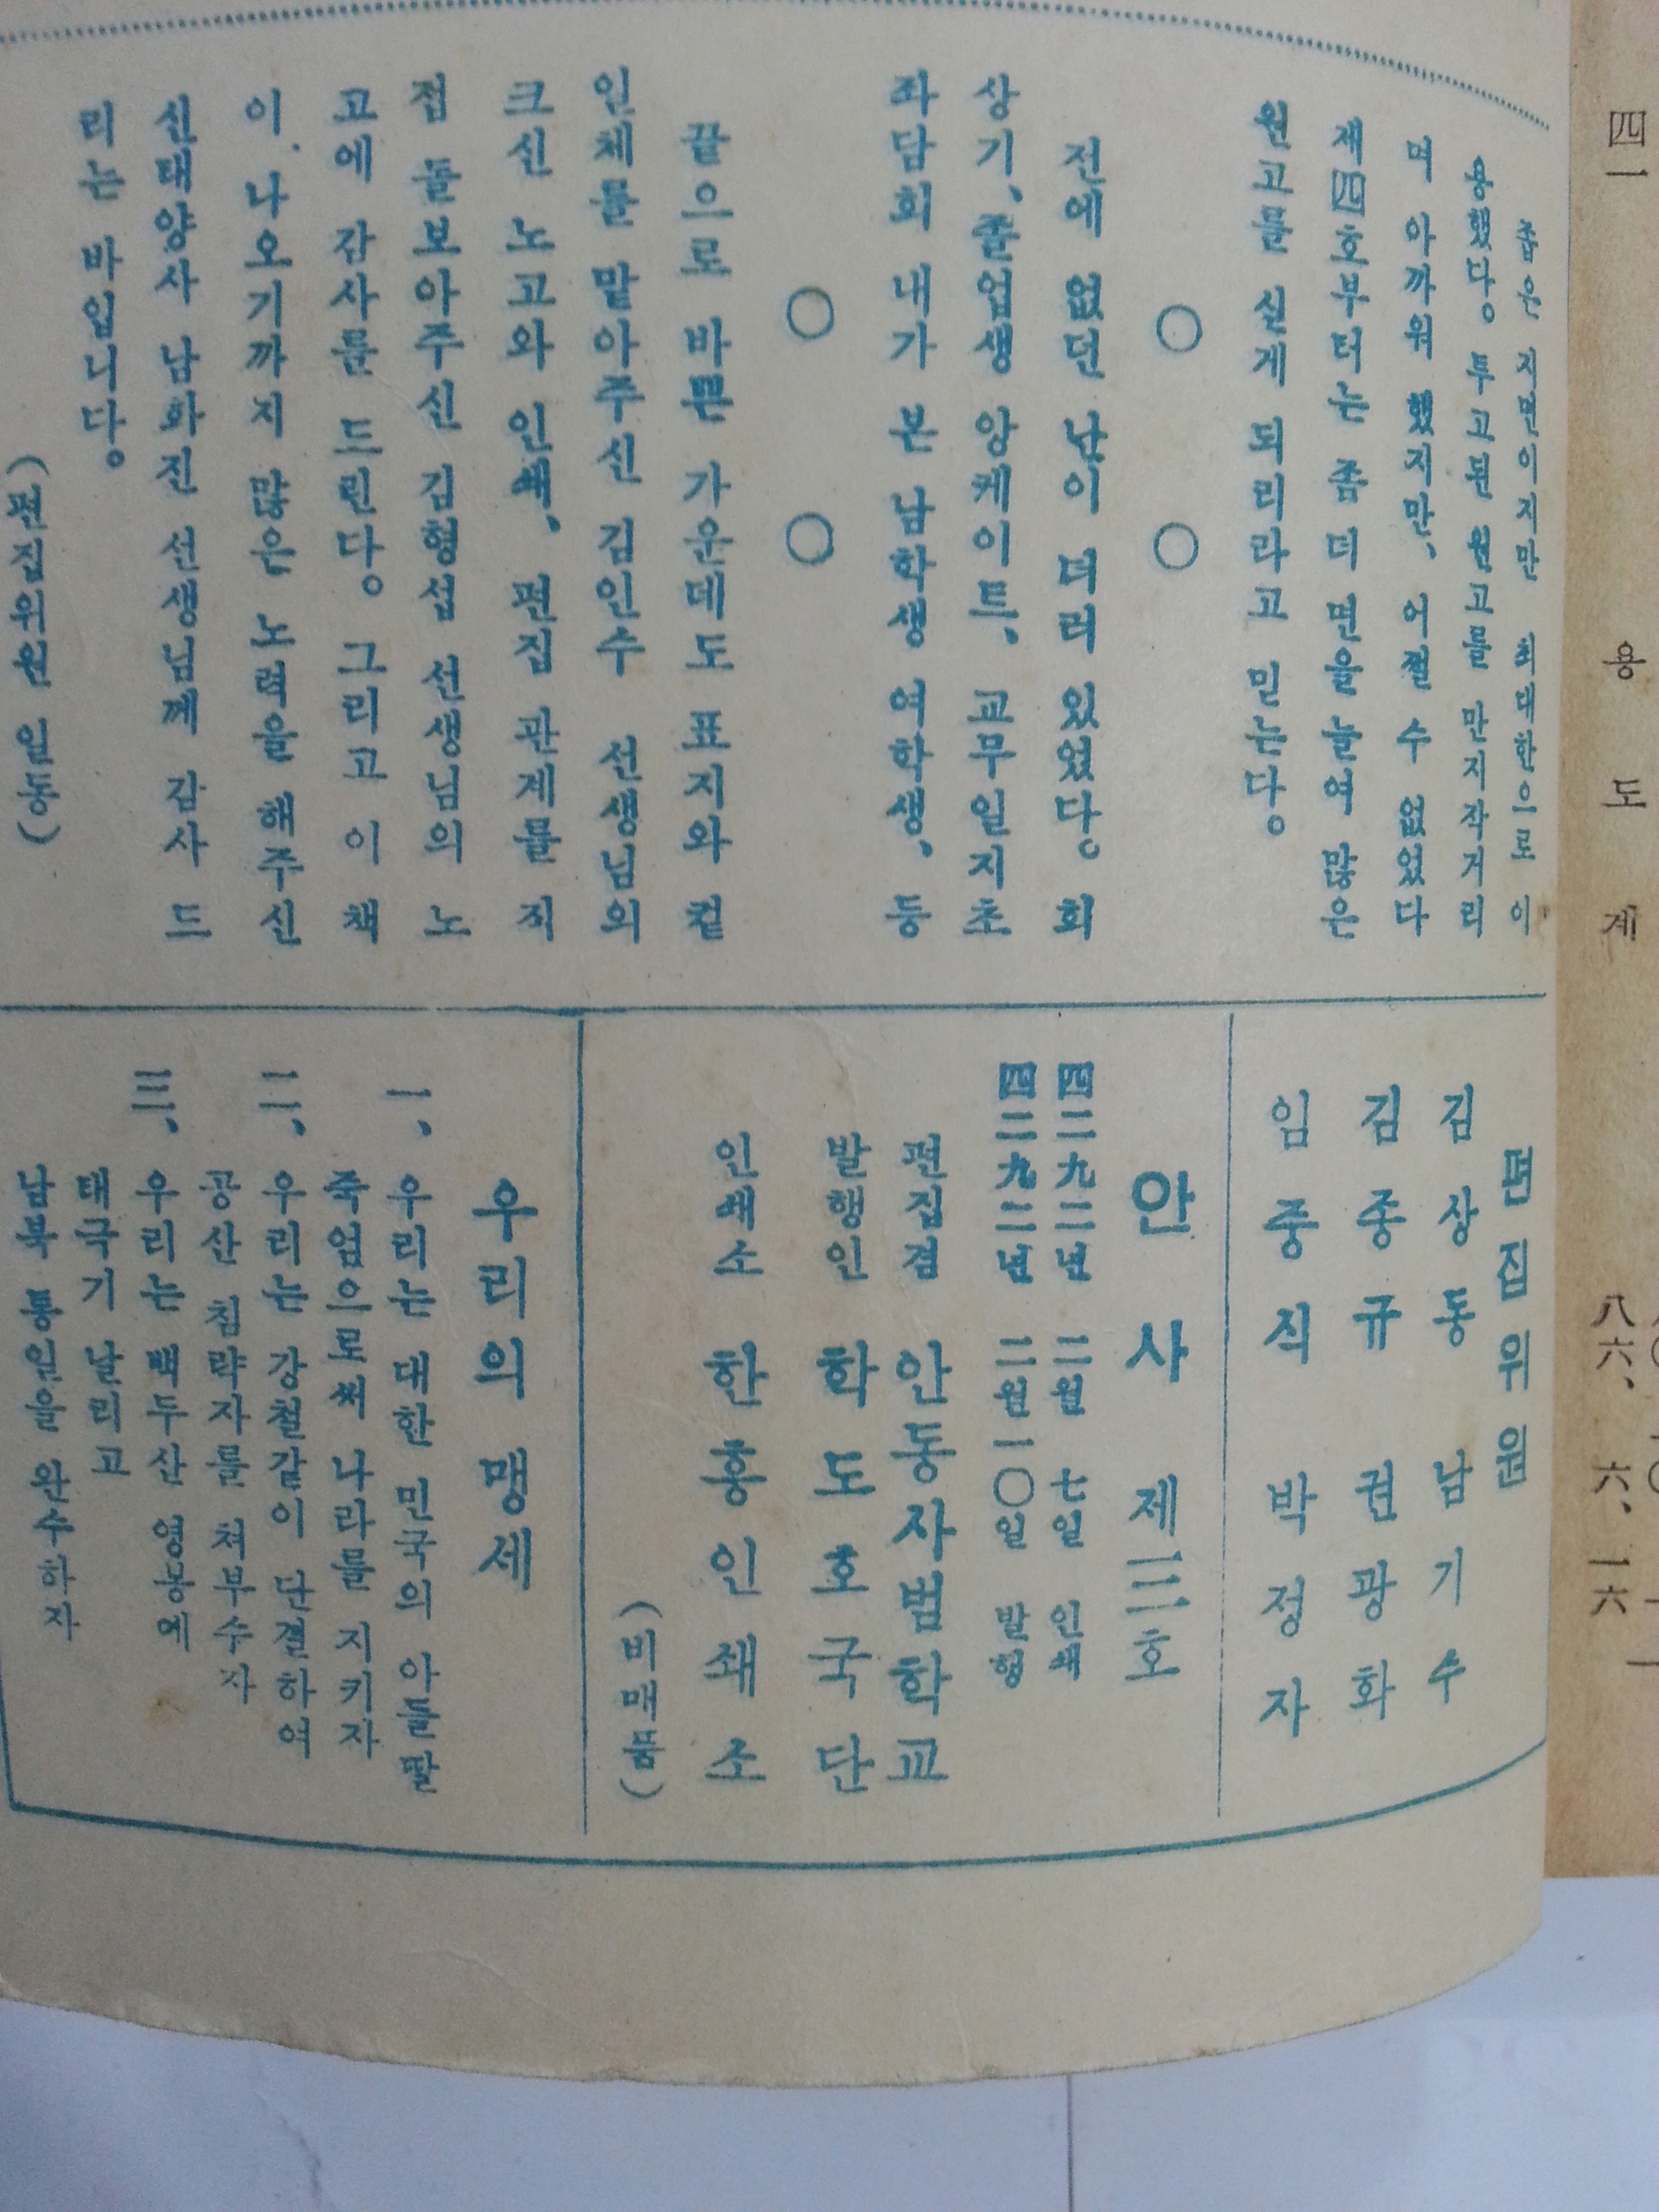 좁은 지면이지만 최대한으로 이
용했다. 투고된 원고를 만지작거리
며 아까워 했지만, 어쩔 수 없었다
제四호부터는 좀 더 면을 늘여 많은
원고를 싣게 되리라고 믿는다.
○ ○
전에 없던 난이 더러 있었다. 회
상기, 졸업생 앙케이트, 교무일지초
좌담회 내가 본 남학생 여학생, 등
○ ○
끝으로 바쁜 가운데도 표지와 컽
인체를 맡아주신 김인수 선생님의
크신 노고와 인쇄, 편집 관계를 직
접 돌보아주신 김형섭 선생님의 노
고에 감사를 드린다. 그리고 이 책
이 나오기까지 많은 노력을 해주신
신태양사 남화진 선생님께 감사 드
리는 바입니다.
(편집위원 일동)
편집위원
김상동 남기수
김종규 권광화
임중식 박정자
안사 제三호
四二九二년 二월 七일 인쇄
四二九二년 二월 一〇일 발행
편집겸 안동사범학교
발행인 학도호국단
인쇄소 한흥인쇄소
(비매품)
우리의 맹세
一、우리는 대한 민국의 아들 딸
죽엄으로써 나라를 지키자
二、우리는 강철같이 단결하여
공산 침략자를 쳐부수자
三、우리는 백두산 영봉에
태극기 날리고
남북 통일을 완수하자
四一
용도계
八六、六、一六